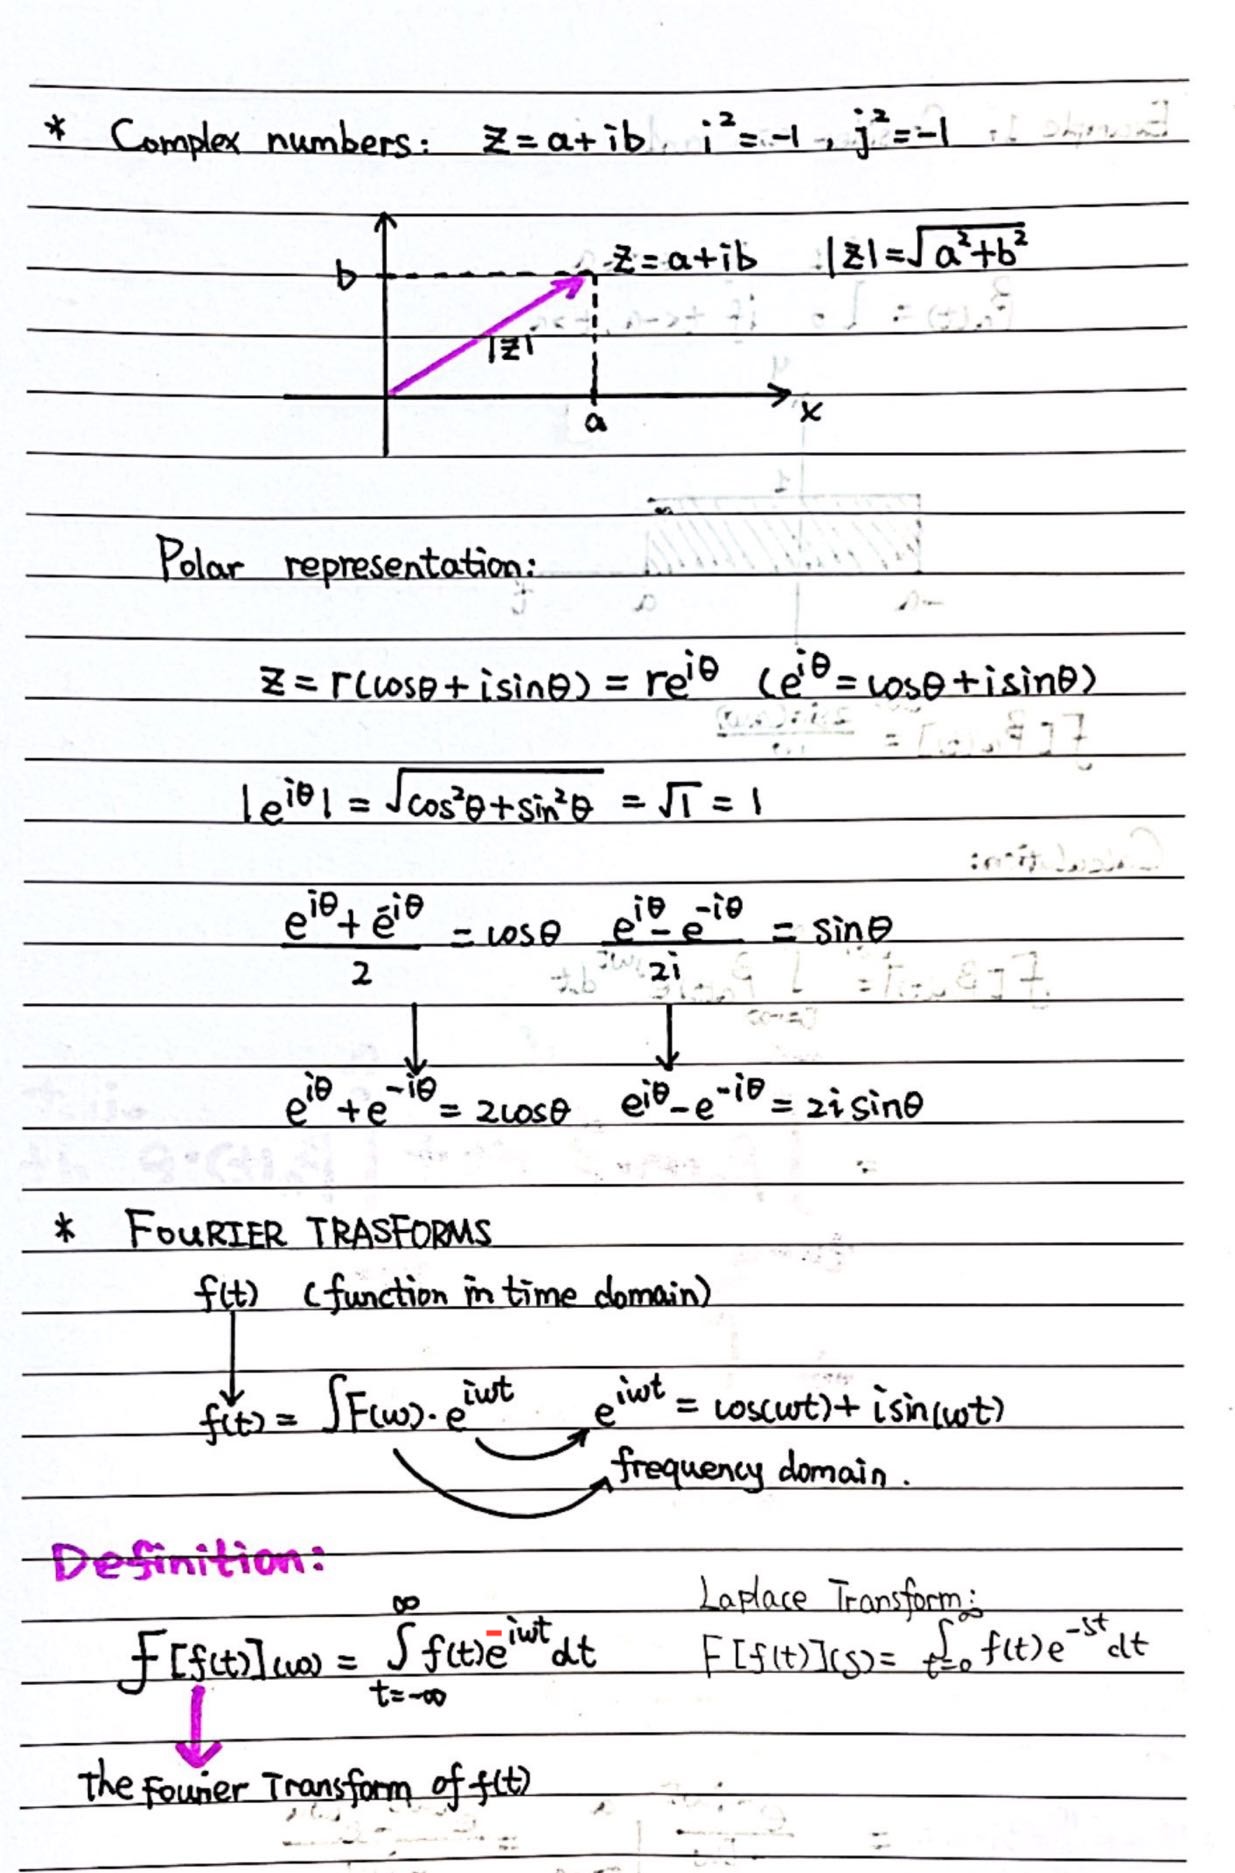 * Complex numbers: z=a+ib i²=-1, j²=-1
b z=a+ib |z|=√(a²+b²)
|z|
a x
Polar representation:
z=r(cosθ+isinθ)=re^{iθ} (e^{iθ}=cosθ+isinθ)
|e^{iθ}|=√(cos²θ+sin²θ)=√1=1
(e^{iθ}+e^{-iθ})/2=cosθ (e^{iθ}-e^{-iθ})/2i=sinθ
e^{iθ}+e^{-iθ}=2cosθ e^{iθ}-e^{-iθ}=2isinθ
* FOURIER TRASFORMS
f(t) (function in time domain)
f(t)=∫F(ω)·e^{iωt} e^{iωt}=cos(ωt)+isin(ωt)
frequency domain.
Definition:
Laplace Transform:
F[f(t)](ω)=∫_{t=-∞}^{∞} f(t)e^{-iωt}dt F[f(t)](s)=∫_{t=0}^{∞} f(t)e^{-st}dt
the Fourier Transform of f(t)